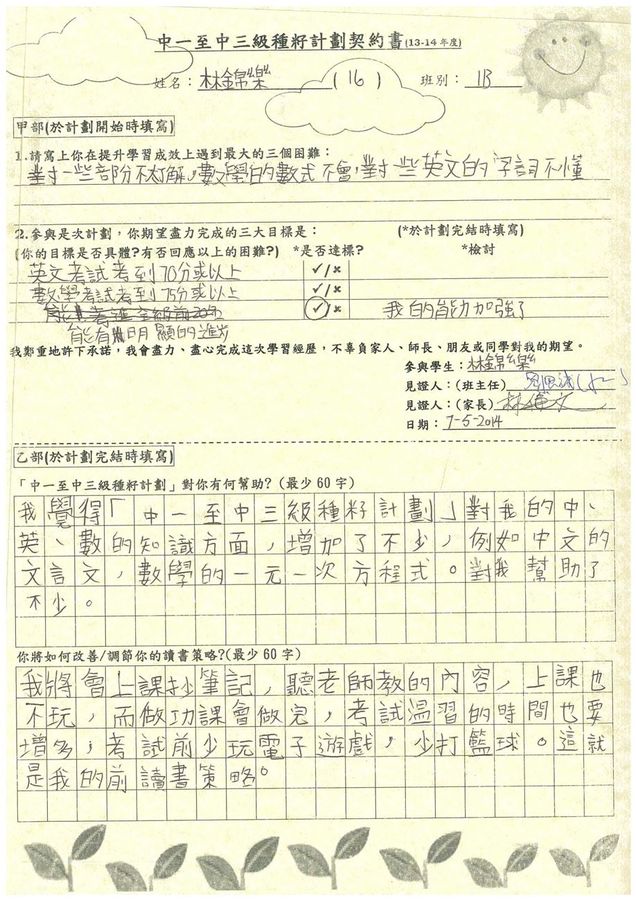 中一至中三級種籽計劃契約書(13-14年度)
姓名：林錦樂 (16) 班別：1B
甲部(於計劃開始時填寫)
1.請寫上你在提升學習成效上遇到最大的三個困難：
對一些部份不太了解，數學的數式不會，對一些英文的字詞不懂
2.參與是次計劃，你期望盡力完成的三大目標是： (*於計劃完結時填寫)
(你的目標是否具體?有否回應以上的困難?) *是否達標? *檢討
英文考試考到70分或以上 ✓/×
數學考試考到75分或以上 ✓/×
✓/× 我的能力加強了
能有明顯的進步
我鄭重地許下承諾，我會盡力、盡心完成這次學習經歷，不辜負家人、師長、朋友或同學對我的期望。
參與學生：林錦樂
見證人：(班主任)
見證人：(家長)
日期：7-5-2014
乙部(於計劃完結時填寫)
「中一至中三級種籽計劃」對你有何幫助?(最少60字)
我覺得「中一至中三級種籽計劃」對我的中、
英、數的知識方面，增加了不少，例如中文的
文言文，數學的一元一次方程式。對我幫助了
不少。
你將如何改善/調節你的讀書策略?(最少60字)
我將會上課抄筆記，聽老師教的內容，上課也
不玩，而做功課會做完，考試溫習的時間也要
增多，考試前少玩電子遊戲，少打籃球。這就
是我的前讀書策略。